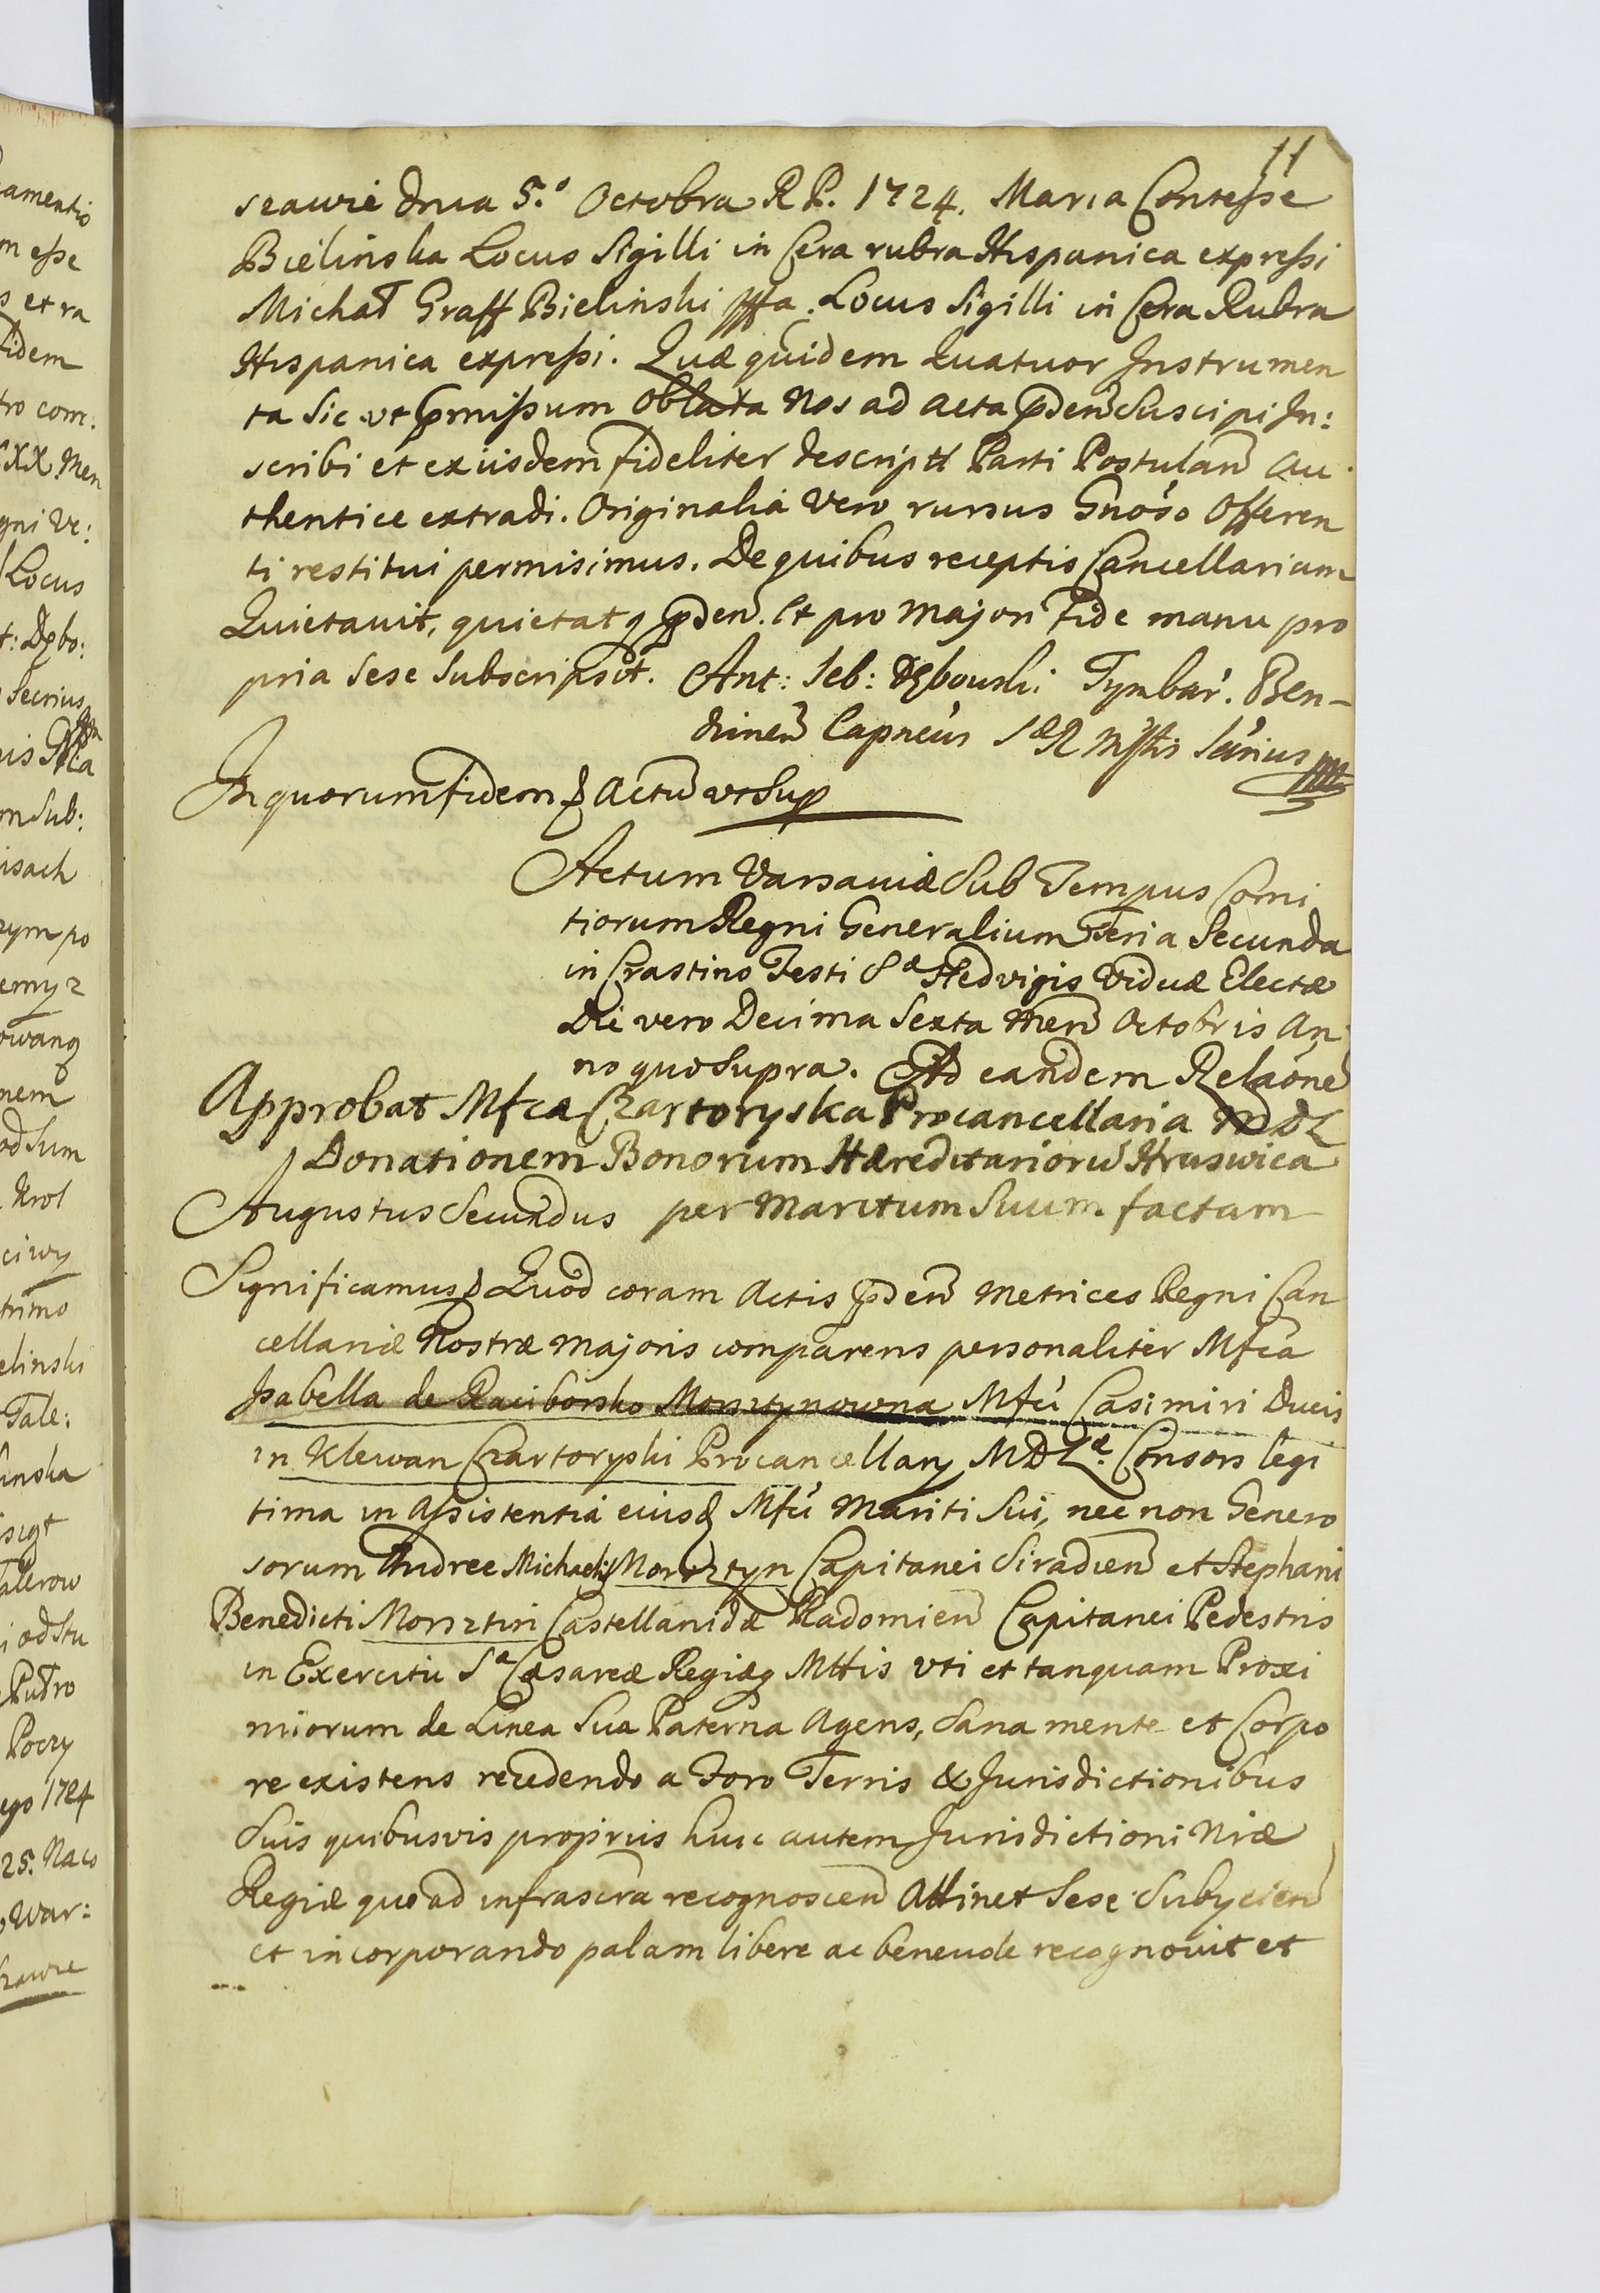 11
szawie dnia 5.° Octobra R P. 1724. Maria Contesse
Bielinska Locus Sigilli in Cera rubra Hispanica expressi
Michał Graff Bielinski Locus Sigilli in Cera Rubra
Hispanica expressi. Quæ quidem Quatuor Instrumen
ta Sic ut pmissum Oblata Nos ad Acta pden Suscipi In:
scribi et exiisdem fideliter descripta Parti Postulan Au
thentice extradi. Originalia Vero rursus Gnoso Offeren
ti restitui permisimus. De quibus receptis Cancellariam
Quietavit, quietatq pden. Et pro Majori Fide manu pro
pria Sese Subscripsit. Ant: Seb: Dębowski Tymbar. Ben-
dinen Capneus S æ R Mttis Sarius
In quorum fidem & Actu ut Sup
Actum Varsaviæ Sub Tempus Comi
tiorum Regni Generalium Feria Secunda
in Crastino Festi Sæ Hedvigis Viduæ Electæ
Die vero Decima Sexta Men Octobris An
no quo Supra. Ad eandem Relaone
Approbat Mfca Czartoryska Procancellaria MDL
Donationem Bonorum Hæreditarioru Hruswica
Augustus Secundus per Maritum Suum factam
Significamus & Quod coram Actis pden Metrices Regni Can
cellariæ Nostræ Majoris comparens personaliter Mfca
Isabella de Raciborsko Morsztynowna Mfci Casimiri Ducis
in Klewan Czartoryski Procancellarÿ MDLæ. Consors legi
tima in Assistentia eiusd Mfci Mariti Sui, nec non Genero
sorum Andree Michaelis Morsztyn Capitanei Siradien et Stephani
Benedicti Morsztin Castellanidæ Radomien Capitanei Pedestris
in Exercitu Sæ Cæsareæ Regiæq Mttis uti et tanquam Proxi
miorum de Linea Sua Paterna Agens, Sana mente et Corpo
re existens recedendo a Foro Terris & Jurisdictionibus
Suis quibusvis proprÿs huic autem Jurisdictioni Nræ
Regiæ quo ad infrascra recognoscen Attinet Sese Subÿcien
et incorporando palam libere ac benevole recognovit et